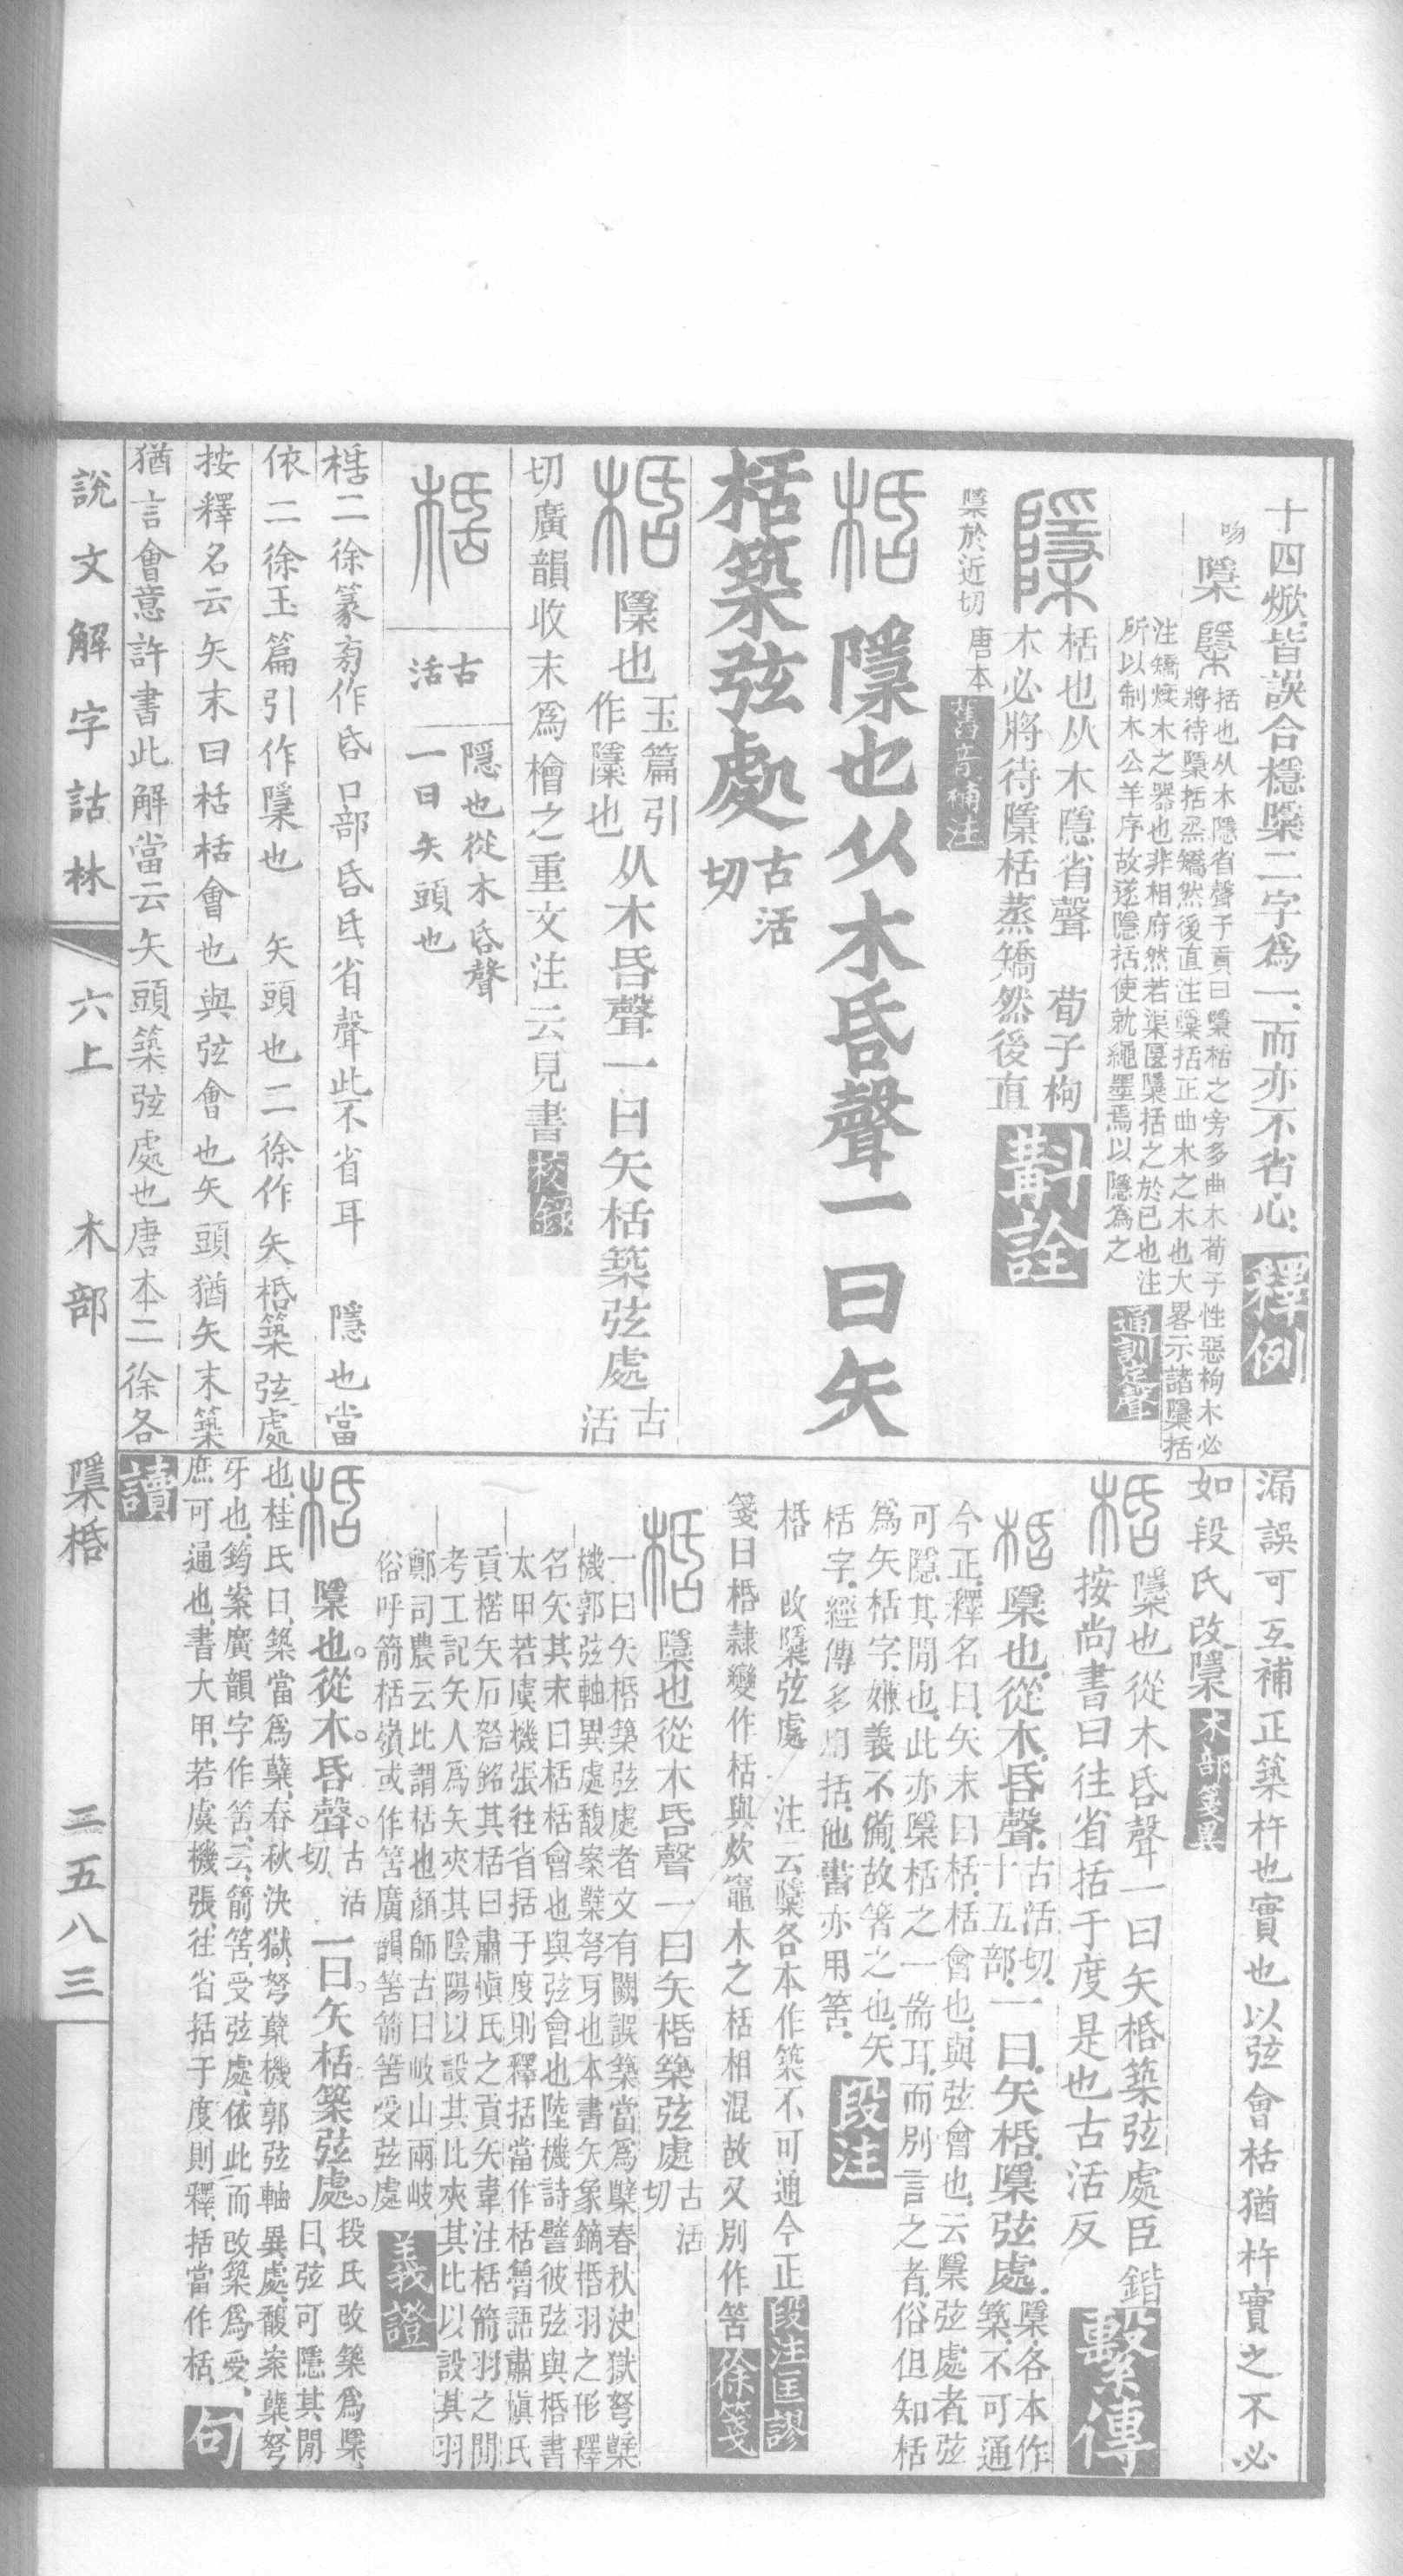 十四焮皆誤合檼㯳二字爲一而亦不省心 釋例
㯳
栝也从木隱省聲子貢曰㯳栝之旁多曲木荀子性惡枸木必
將待㯳栝烝矯然後直注㯳括正曲木之木也大畧示諸㯳括
注矯煣木之器也非相府然若渠匽㯳括之於已也注
所以制木公羊序故遂隱括使就繩墨焉以隱爲之 通訓定聲
栝也从木隱省聲 荀子枸
木必將待㯳栝蒸矯然後直 斠詮
㯳於近切 唐本 舊音補注
㯳也从木昏聲一曰矢
栝築弦處 古活切
㯳也 玉篇引作㯳也 从木昏聲一曰矢栝築弦處 古活
切廣韻收末爲檜之重文注云見書 校錄
古活 隱也從木昏聲
一曰矢頭也
栝二徐篆夯作昏口部昏氐省聲此不省耳 隱也當
依二徐玉篇引作㯳也 矢頭也二徐作矢桰築弦處
按釋名云矢末曰栝栝會也與弦會也矢頭猶矢末築
猶言會意許書此解當云矢頭築弦處也唐本二徐各
漏誤可互補正築杵也實也以弦會栝猶杵實之不必
如段氏改㯳 木部箋異
㯳也從木昏聲一曰矢桰築弦處臣鍇
按尚書曰往省括于度是也古活反 繫傳
㯳也從木昏聲古活切十五部一曰矢桰㯳弦處㯳各本作築不可通
今正釋名曰矢末曰栝栝會也與弦會也云㯳弦處者弦
可隱其閒也此亦㯳栝之一耑耳而別言之者俗但知栝
爲矢栝字嫌義不備故箸之也矢
栝字經傳多用括他書亦用筈 段注
桰 改㯳弦處 注云㯳各本作築不可通今正 段注匡謬
箋曰桰隸變作栝與炊竈木之栝相混故又別作筈 徐箋
㯳也從木昏聲一曰矢桰築弦處 古活切
一曰矢桰築弦處者文有闕誤築當爲櫱春秋決獄弩櫱
機郭弦軸異處馥案櫱弩身也本書矢象鏑栝羽之形釋
名矢其末曰栝栝會也與弦會也陸機詩譬彼弦與桰書
太甲若虞機張往省括于度則釋括當作栝魯語肅愼氏
貢楛矢石砮銘其栝曰肅愼氏之貢矢韋注栝箭羽之閒
考工記矢人爲矢夾其陰陽以設其比夾其比以設其羽
鄭司農云比謂栝也顏師古曰岐山兩岐
俗呼箭栝嶺或作筈廣韻筈箭筈受弦處 義證
㯳也從木昏聲古活切一曰矢栝築弦處段氏改築爲㯳曰弦可隱其閒
也桂氏曰築當爲櫱春秋決獄弩櫱機郭弦軸異處馥案櫱弩
牙也筠案廣韻字作筈云箭筈受弦處依此而改築爲受
庶可通也書大甲若虞機張往省括于度則釋括當作栝 句
讀
說文解字詁林 六上 木部 㯳桰 二五八三